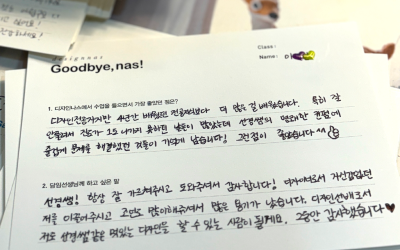 designnas
Goodbye, nas!
Class :
Name :
1. 디자인나스에서 수업을 들으면서 가장 좋았던 점은?
디자인전공자지만 4년간 배웠던 전공지식보다 더 많은 걸 배웠습니다. 특히 잘
안풀려서 진도가 1도 나가지 못하던 날들이 많았는데 선생쌤의 명쾌한 컨펌에
즐겁게 문제를 해결했던 것들이 기억에 남습니다! 그런점이 좋았습니다^^
2. 담임선생님께 하고 싶은 말
선경쌤! 항상 잘 가르쳐주시고 도와주셔서 감사합니다! 디자이너로서 자신감없던
저를 이끌어주시고 고민도 많이해주셔서 많은 용기가 났습니다. 디자인선배로서
저도 선경쌤같은 멋있는 디자인을 할 수 있는 사람이 될게요, 2승안 감사했습니다♥